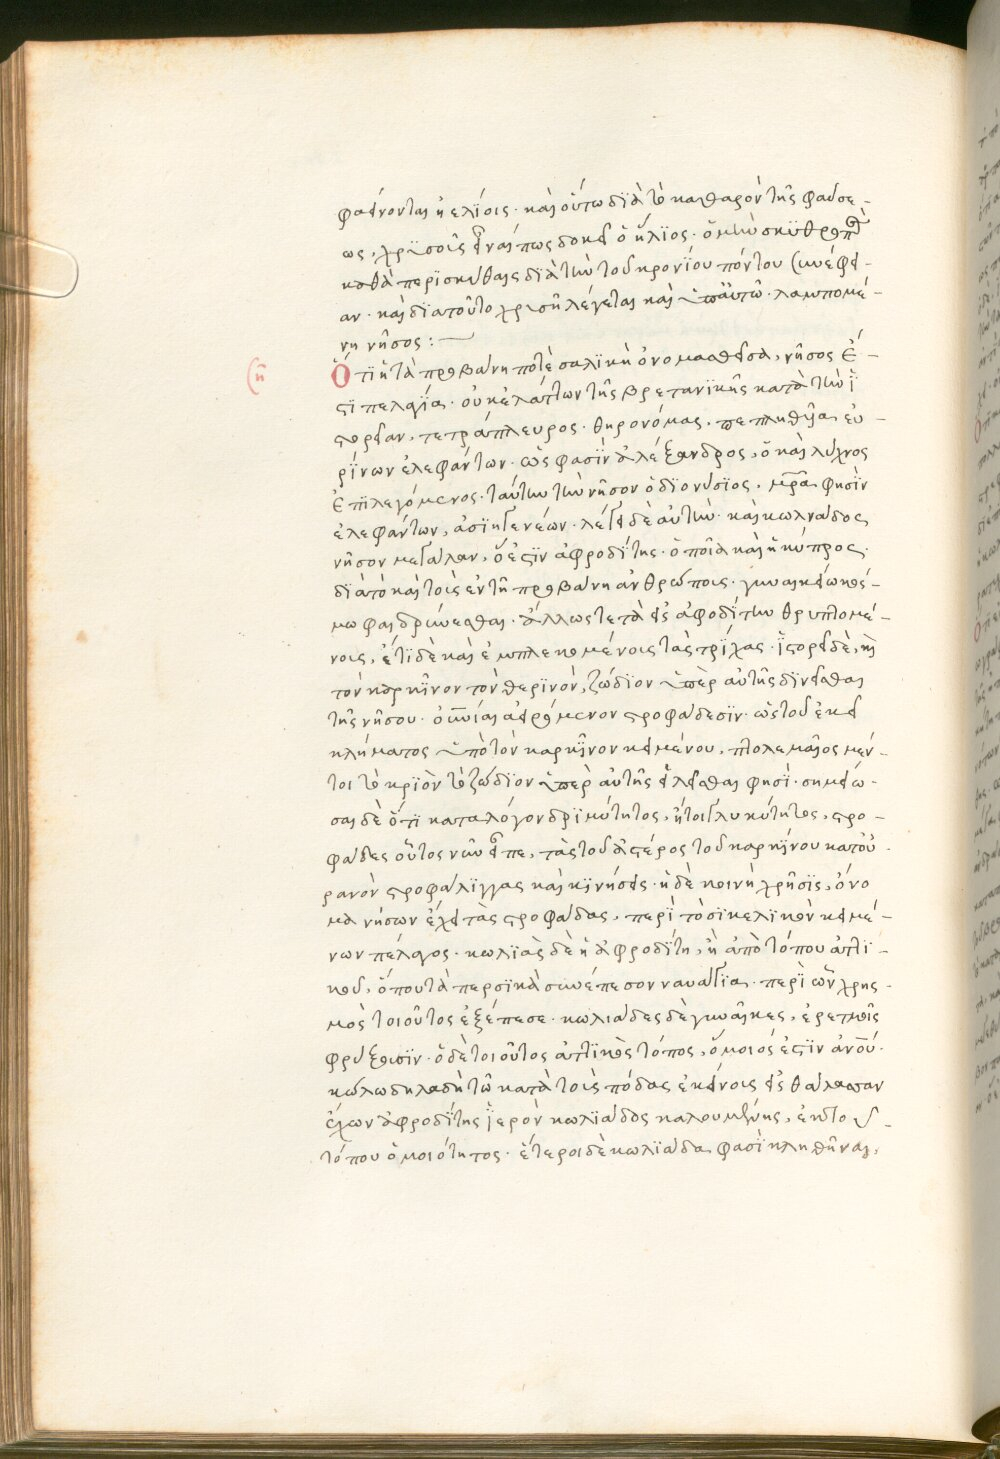 φαίνονται ἡελίοις· καὶ οὕτω διὰ τὸ καθαρὸν τῆς φαύσε-
ως, χρϋσοῦς εἶναί πως δοκεῖ ὁ ἥλϊος· ὁ μὴ ὢν σκϋθρωπὸς
καθὰ περὶ σκύθαις διὰ τὴν τοῦ κρονίου πόντου συνέφει-
αν· καὶ διατοῦτο χρυσῆ λέγεται καὶ ὑπ' αὐτῶ· λαμπομέ-
νη νῆσος:
Ὅτϊ ἡ ταπροβάνη ποτὲ σαλϊκὴ ὀνομασθεῖσα, νῆσος ἐ-
στϊ πελαγία· οὐκ ἐλάττων τῆς βρετανϊκῆς κατὰ τὴν ἱ-
στορείαν, τετράπλευρος· θηρονόμας, πεπληθῦα εὐ-
ρίνων ἐλεφάντων· ὥς φασϊν ἀλέξανδρος, ὁ καὶ λύχνος
ἐπϊλεγόμενος· ταύτην τὴν νῆσον ὁ διονύσϊος, μητέρα φησὶν
ἐλεφάντων, ἀσϊηγενέων· λέγει δὲ αὐτὴν· καὶ κωλιάδος
νῆσον μεγάλαν, ὅ ἐστϊν ἀφροδίτης· ὁποία καὶ ἡ κύπρος·
διὰ τὸ καὶ τοῖς ἐν τῆ προβάνη ἀνθρώποις· γυναικείω κόσ-
μω φαιδρύνεσθαι· ἄλλως τε τὰ εἰς ἀφοδίτην θρυπτομέ-
νοις, ἔτϊ δὲ καὶ ἐμπλεκομένοις τὰς τρίχας· ἱστορεῖ δὲ, καὶ
τὸν καρκῖνον τὸν θερϊνὸν, ζώδϊον ὑπὲρ αὐτῆς δϊνεῖσθαι
τῆς νήσου· ὁποίαι αἰρόμενον στροφάδεσϊν· ὡς τοῦ ἐκεῖ
κλήματος ὑπὸ τὸν καρκῖνον κειμένου, πτολεμαῖος μέν-
τοι τὸ κρϊὸν τὸ ζώδϊον ὑπὲρ αὐτῆς ἑλεῖσθαι φησὶ· σημειώ-
σαι δὲ ὅτϊ κατὰ λόγον δρϊμύτητος, ἤτοι γλυκύτητος, στρο-
φάδες οὗτος νῦν εἶπε, τὰς τοῦ ἀστέρος τοῦ καρκίνου κατ' οὐ-
ρανὸν στροφάλϊγγας καὶ κϊνήσεις· ἡ δὲ κοινὴ χρῆσϊς, ὄνο
μα νήσων ἔχει τὰς στροφάδας, περὶ τὸ σϊκελϊκὸν κειμέ-
νων πέλαγος· κωλϊὰς δὲ ἡ ἀφροδίτη, ἢ ἀπὸ τόπου ἀττϊ-
κοῦ, ὅπου τὰ περσϊκὰ συνέπεσον ναυάγϊα· περὶ ὧν χρησ-
μὸς τοιοῦτος ἐξέπεσε· κωλιάδες δὲ γυναῖκες, ἐρετμοῖς
φρύξουσϊν· ὁ δὲ τοιοῦτος ἀττϊκὸς τόπος, ὅμοιός ἐστϊν ἀνθρώπου·
κώλω δηλαδὴ τῶ κατὰ τοὺς πόδας ἐκείνοις εἰς θάλασσαν
ἔχων ἀφροδίτης ἱερὸν κωλϊάδος καλουμένης, ἐκ τοῦ
τόπου ὁμοιότητος· ἕτεροι δὲ κωλϊάδα φασϊ κληθῆναι,